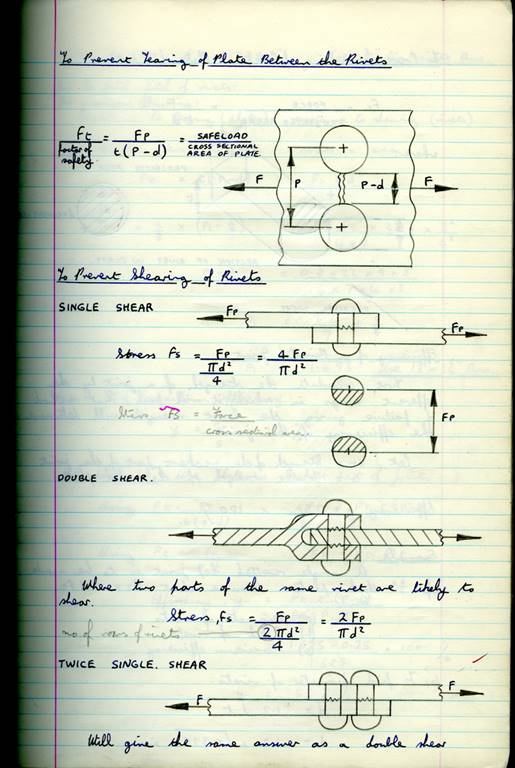 To Prevent Tearing of Plate Between the Rivets
Ft / factor of safety = Fp / t(P-d) = SAFELOAD / CROSS SECTIONAL AREA OF PLATE
F P P-d F
To Prevent Shearing of Rivets
SINGLE SHEAR
Fp Fp
Stress Fs = Fp / πd²/4 = 4Fp / πd²
Stress Fs = Force / cross sectional area
Fp
DOUBLE SHEAR.
Where two parts of the same rivet are likely to
shear.
Stress, Fs = Fp / 2πd²/4 = 2Fp / πd²
no of rows of rivets
TWICE SINGLE. SHEAR
F F
Will give the same answer as a double shear